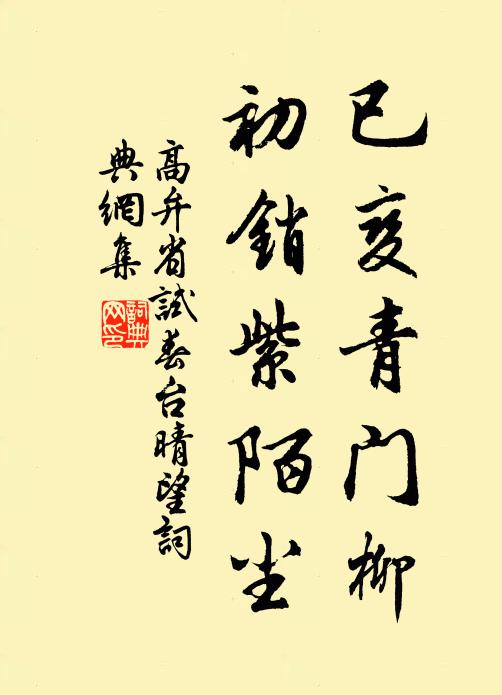 已变青门柳
初銷紫陌尘
高弁省試春台晴望詞
典網集
詞典网印